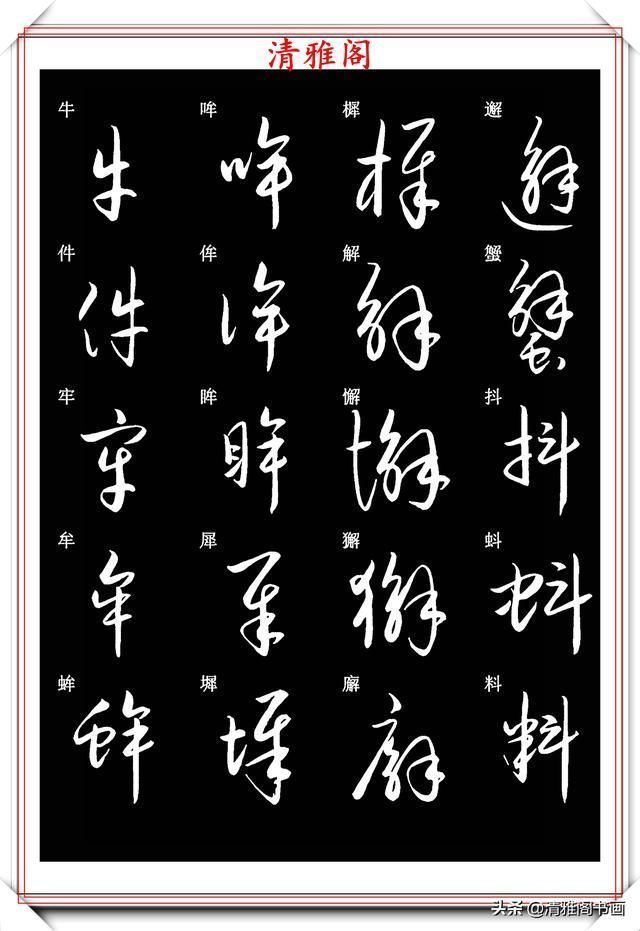 清雅阁
牛 哞 樨 邂
件 侔 解 蟹
牢 眸 懈 抖
牟 犀 獬 蚪
蛑 墀 廨 料
头条@清雅阁书画